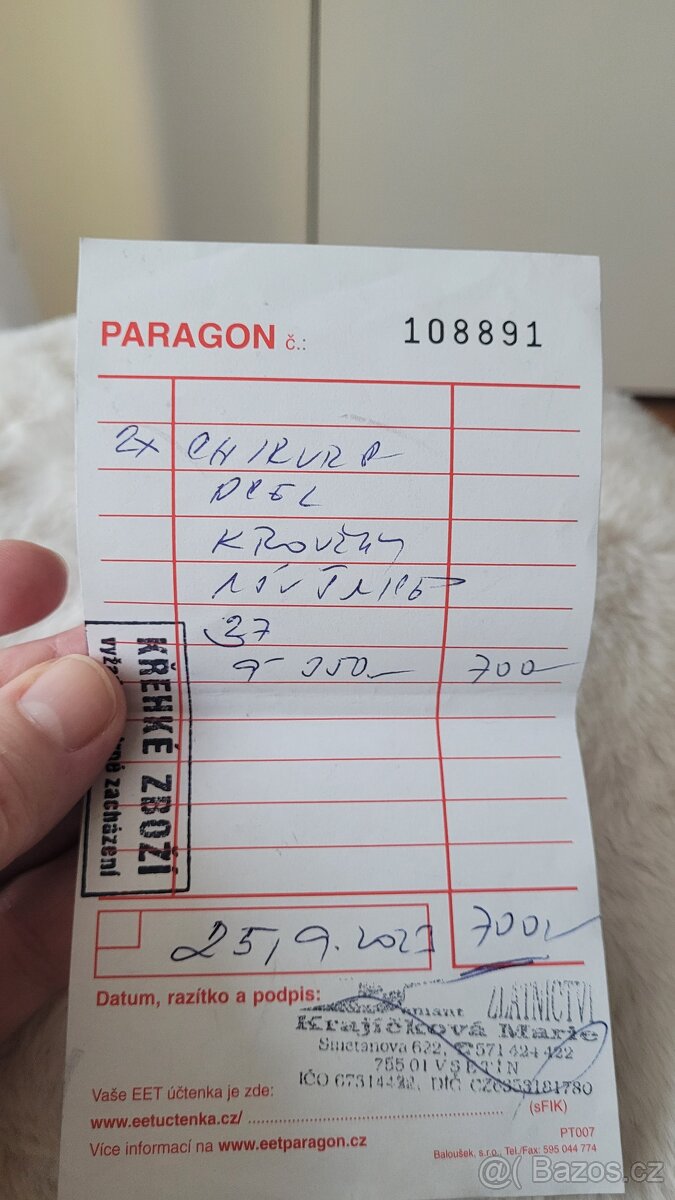 PARAGON č.: 108891
2x CHIRUR
OCEL
KROUŽKY
NÁUŠNICE
37
350,- 700,-
KŘEHKÉ ZBOŽÍ
zacházení
25,9.2023 700,-
Datum, razítko a podpis:
ZLATNICTVÍ
Krajíčková Marie
Smetanova 622, ☎571 424 422
755 01 VSETÍN
IČO 67314422, DIČ
Vaše EET účtenka je zde:
www.eetuctenka.cz/ (sFIK)
Více informací na www.eetparagon.cz
PT007
Baloušek, s.r.o., Tel./Fax: 595 044 774
@ Bazos.cz